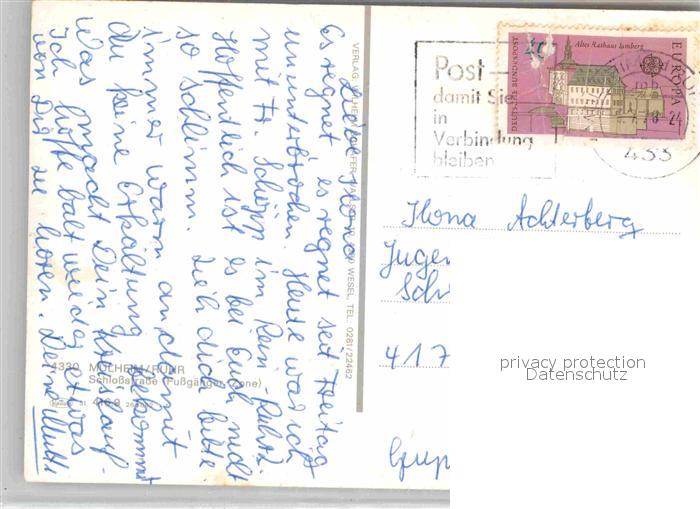 Liebe Ilona
Es regnet es regnet seit Freitag
ununterbrochen. Heute war ich
mit Fr. Schöpp im Rein-Ruhrz.
Hoffentlich ist es bei Euch nicht
so schlimm. Zieh dich bitte
immer warm an damit
du keine Erkältung bekommst
Was macht Dein Kreislauf
Ich hoffe balt wieder etwas
von Dir zu hören. Deine Mutti
VERLAG WESEL, TEL. 0281/22462
4330 MÜLHEIM/RUHR
Schloßstraße (Fußgänger-Zone)
Post
damit Sie
in
Verbindung
bleiben
Altes Rathaus Bamberg
EUROPA
DEUTSCHE BUNDESPOST
24
433
Ilona Achterberg
Jugen
Sch
417
privacy protection
Datenschutz